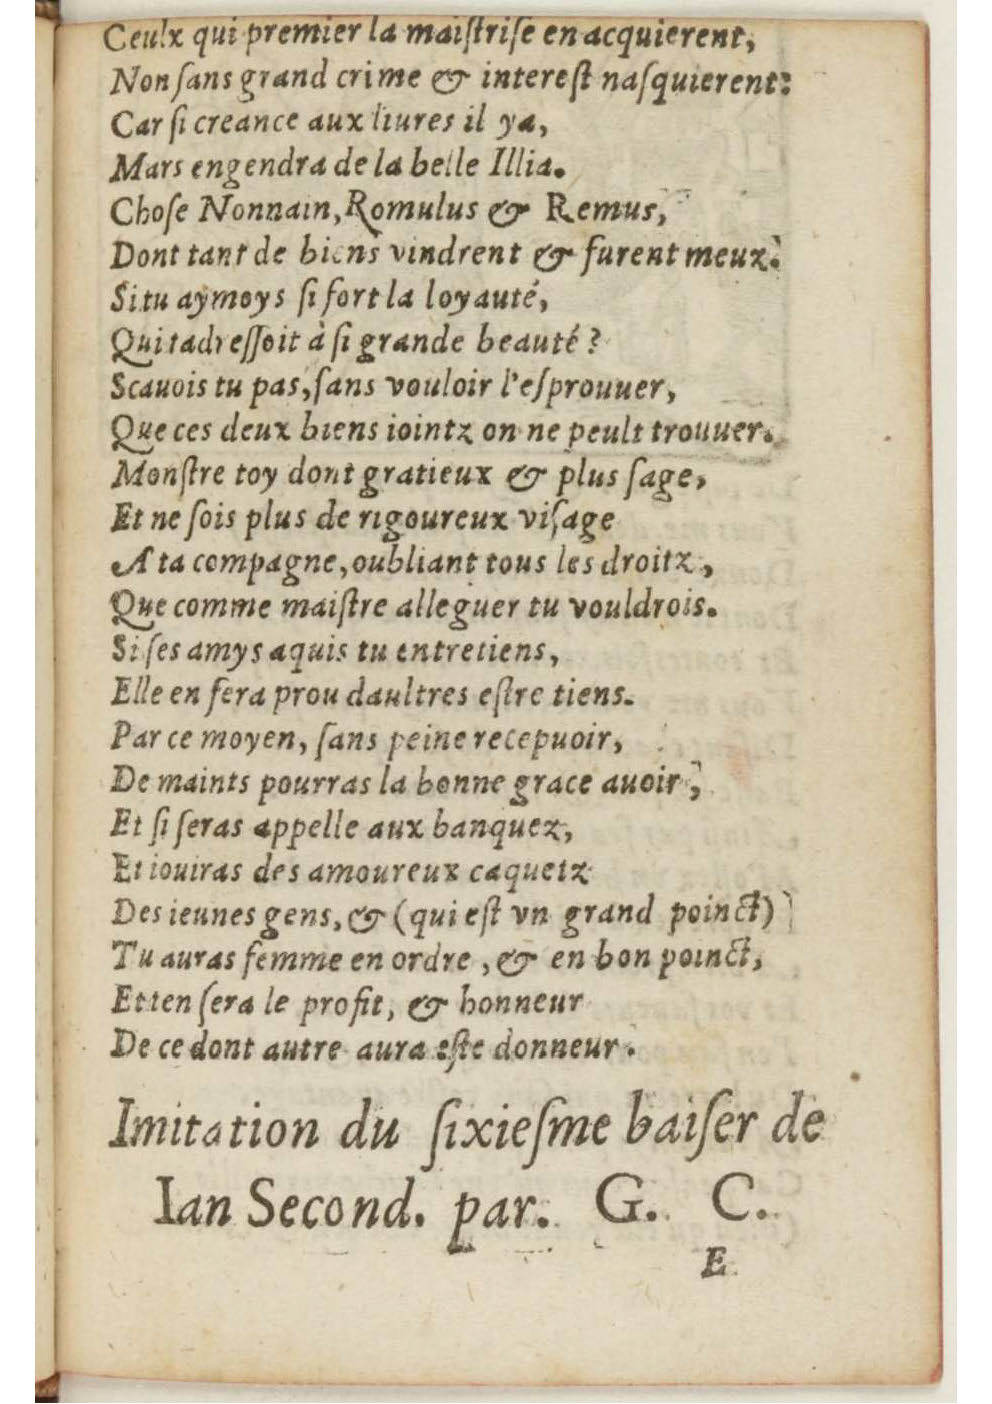 Ceulx qui premier la maiſtriſe en acquierent,
Non ſans grand crime & intereſt naſquierent:
Car ſi creance aux liures il ya,
Mars engendra de la belle Illia.
Choſe Nonnain, Romulus & Remus,
Dont tant de biens vindrent & furent meuz.
Si tu aymoys ſi fort la loyauté,
Qui tadreſſoit à ſi grande beauté?
Scauois tu pas, ſans vouloir l'eſprouuer,
Que ces deux biens iointz on ne peult trouuer.
Monſtre toy dont gratieux & plus ſage,
Et ne ſois plus de rigoureux viſage
A ta compagne, oubliant tous les droitz,
Que comme maiſtre alleguer tu vouldrois.
Si ſes amys aquis tu entretiens,
Elle en fera prou daultres eſtre tiens.
Par ce moyen, ſans peine recepuoir,
De maints pourras la bonne grace auoir,
Et ſi ſeras appelle aux banquez,
Et iouiras des amoureux caquetz
Des ieunes gens, & (qui eſt vn grand poinct)
Tu auras femme en ordre, & en bon poinct,
Et ten ſera le profit, & honneur
De ce dont autre aura eſte donneur.
Imitation du ſixieſme baiſer de
Ian Second. par. G. C.
E